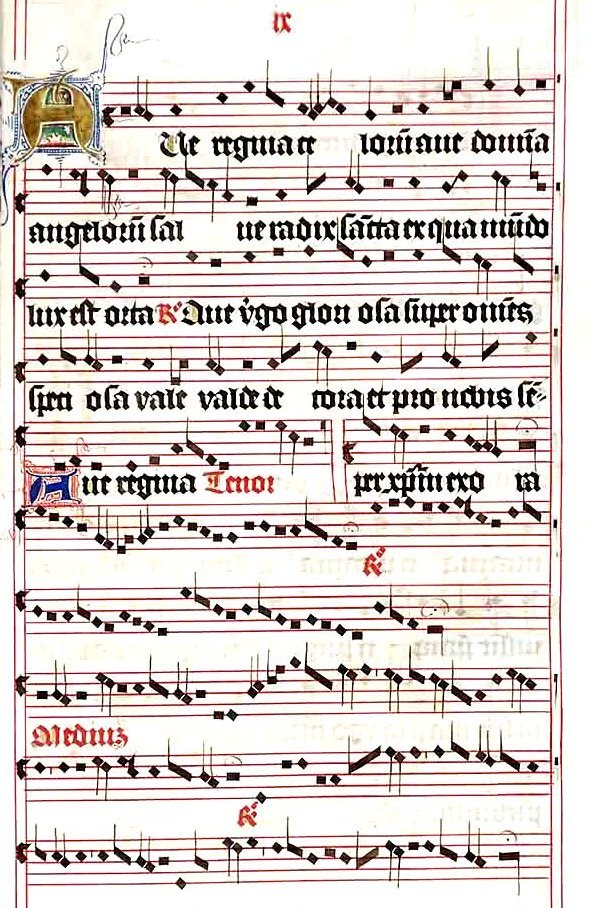 ix
Aue regina celoru᷉ aue domi᷉a
angeloru᷉ sal ue radix sa᷉cta ex qua mu᷉do
lux est orta R° Aue v᷉go glori osa super om᷉es
speci osa vale valde de cora et pro nobis se᷉-
Aue regina Tenor per xp᷉m exo ra
R°
Medius
R°